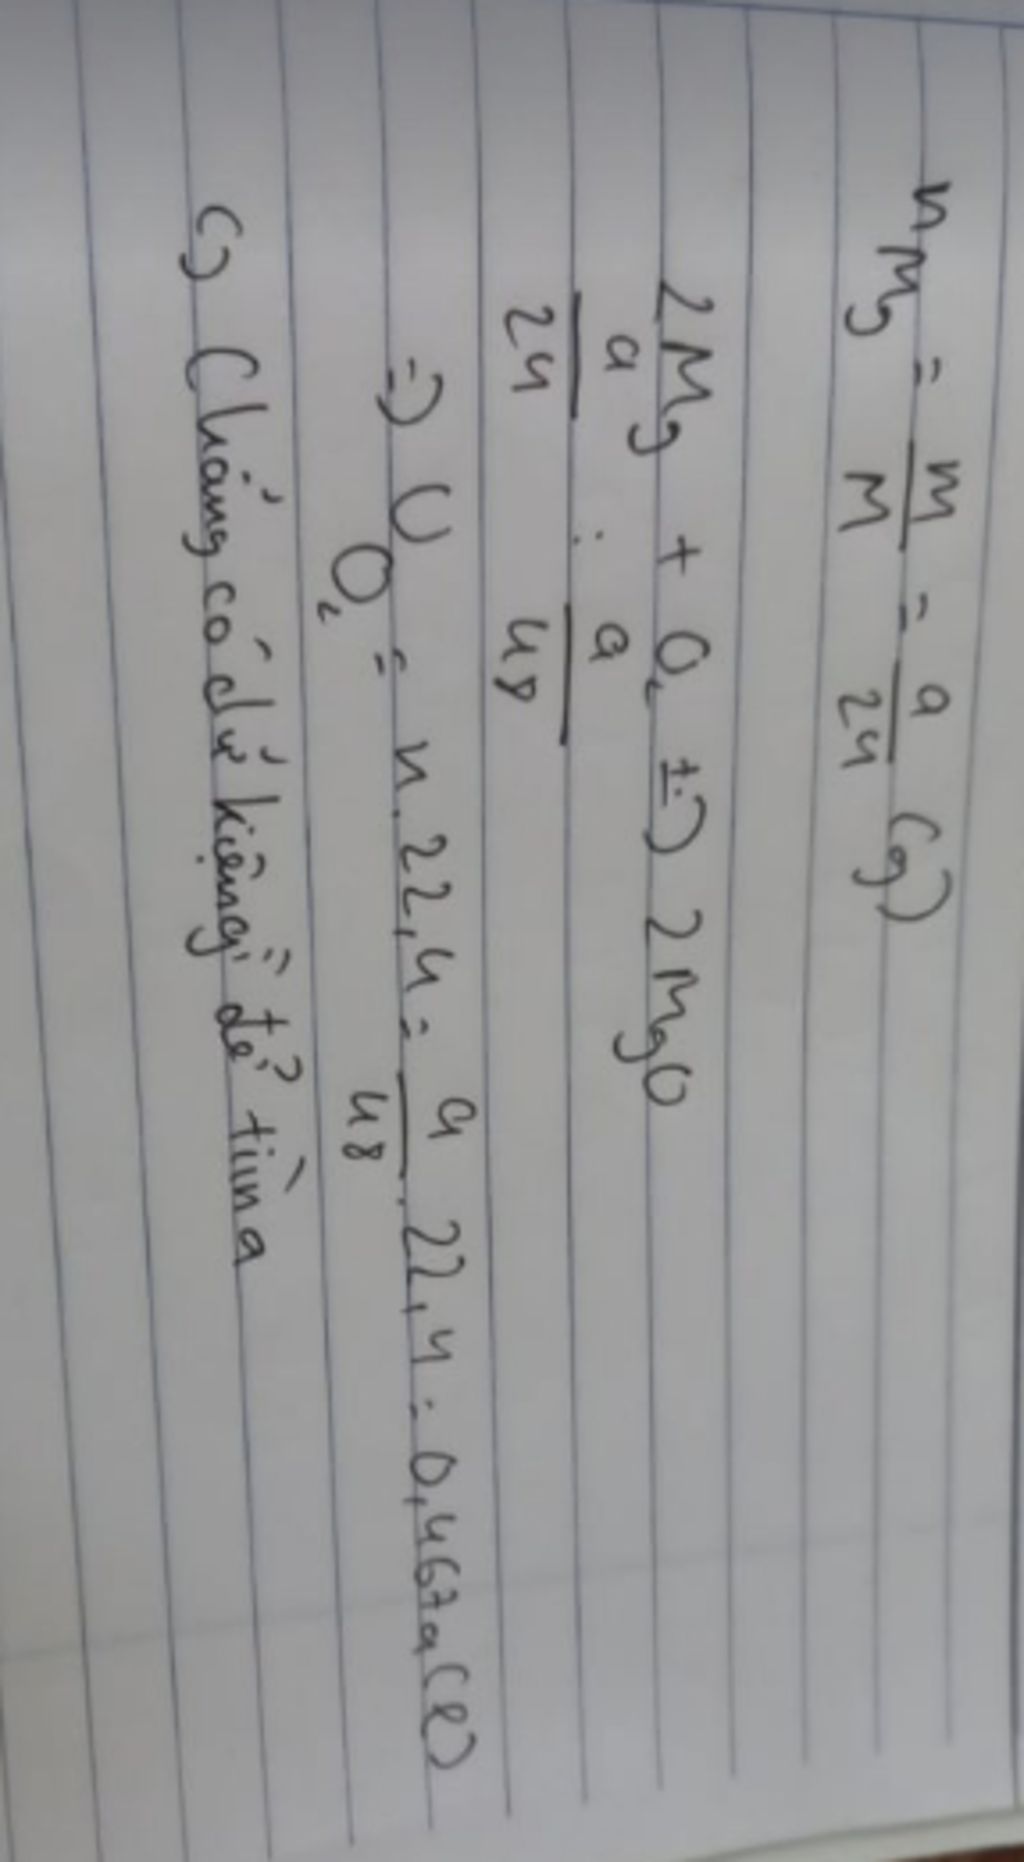 n Mg = m/M = a/24 (g)
2Mg + O₂ t:) 2MgO
a/24 : a/48
=) V O₂ = n.22,4 = a/48 . 22,4 = 0,467a(l)
c) Chẳng có dữ kiện gì để tìm a